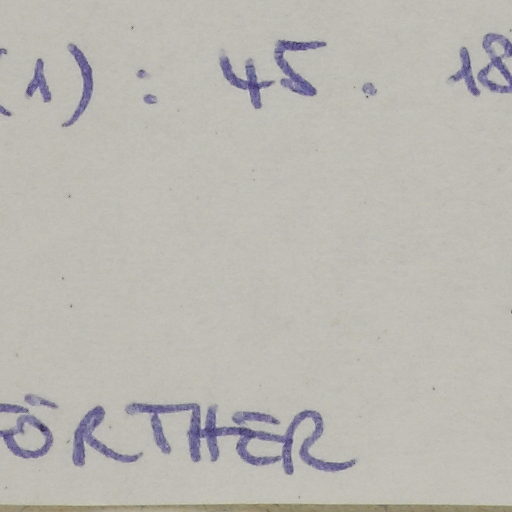 (1) : 45. 18
FÖRTHER